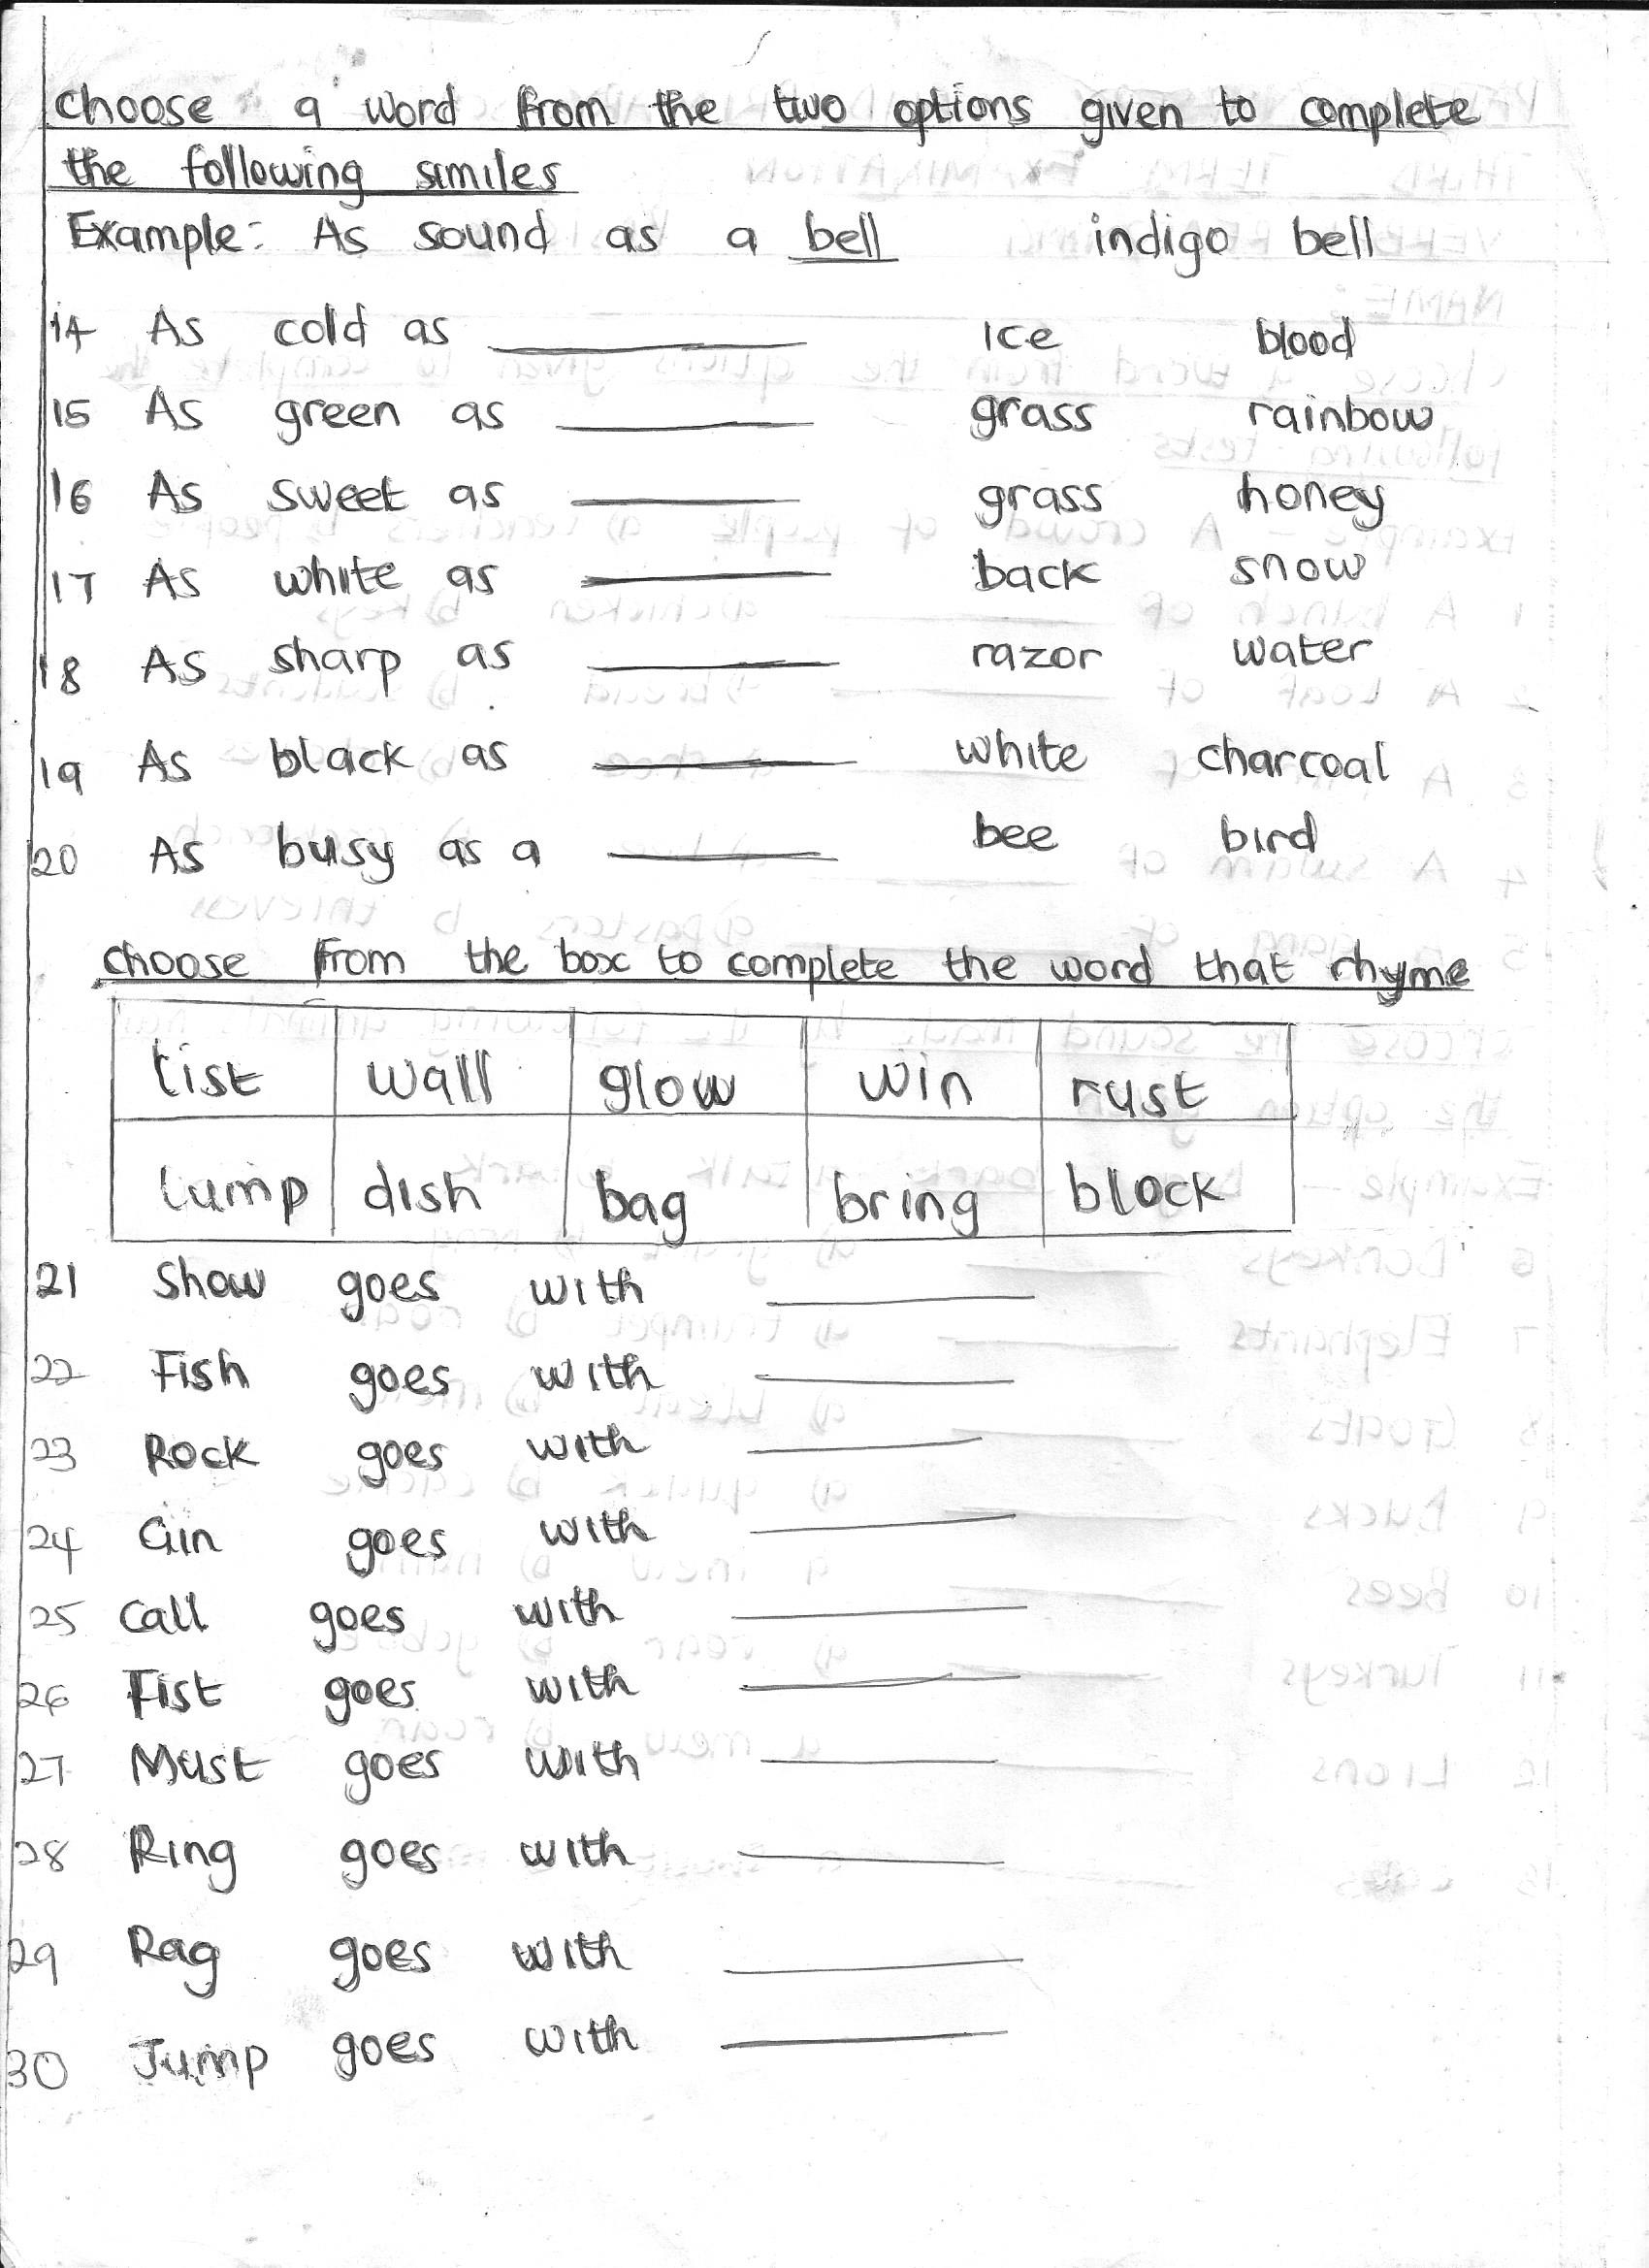 choose a word from the two options given to complete
the following similes
Example: As sound as a bell indigo bell
14 As cold as ________ ice blood
15 As green as ________ grass rainbow
16 As sweet as ________ grass honey
17 As white as ________ back snow
18 As sharp as ________ razor water
19 As black as ________ white charcoal
20 As busy as a ________ bee bird
choose from the box to complete the word that rhyme
list wall glow win rust
lump dish bag bring block
21 Show goes with ________
22 Fish goes with ________
23 Rock goes with ________
24 Gin goes with ________
25 Call goes with ________
26 Fist goes with ________
27 Must goes with ________
28 Ring goes with ________
29 Rag goes with ________
30 Jump goes with ________